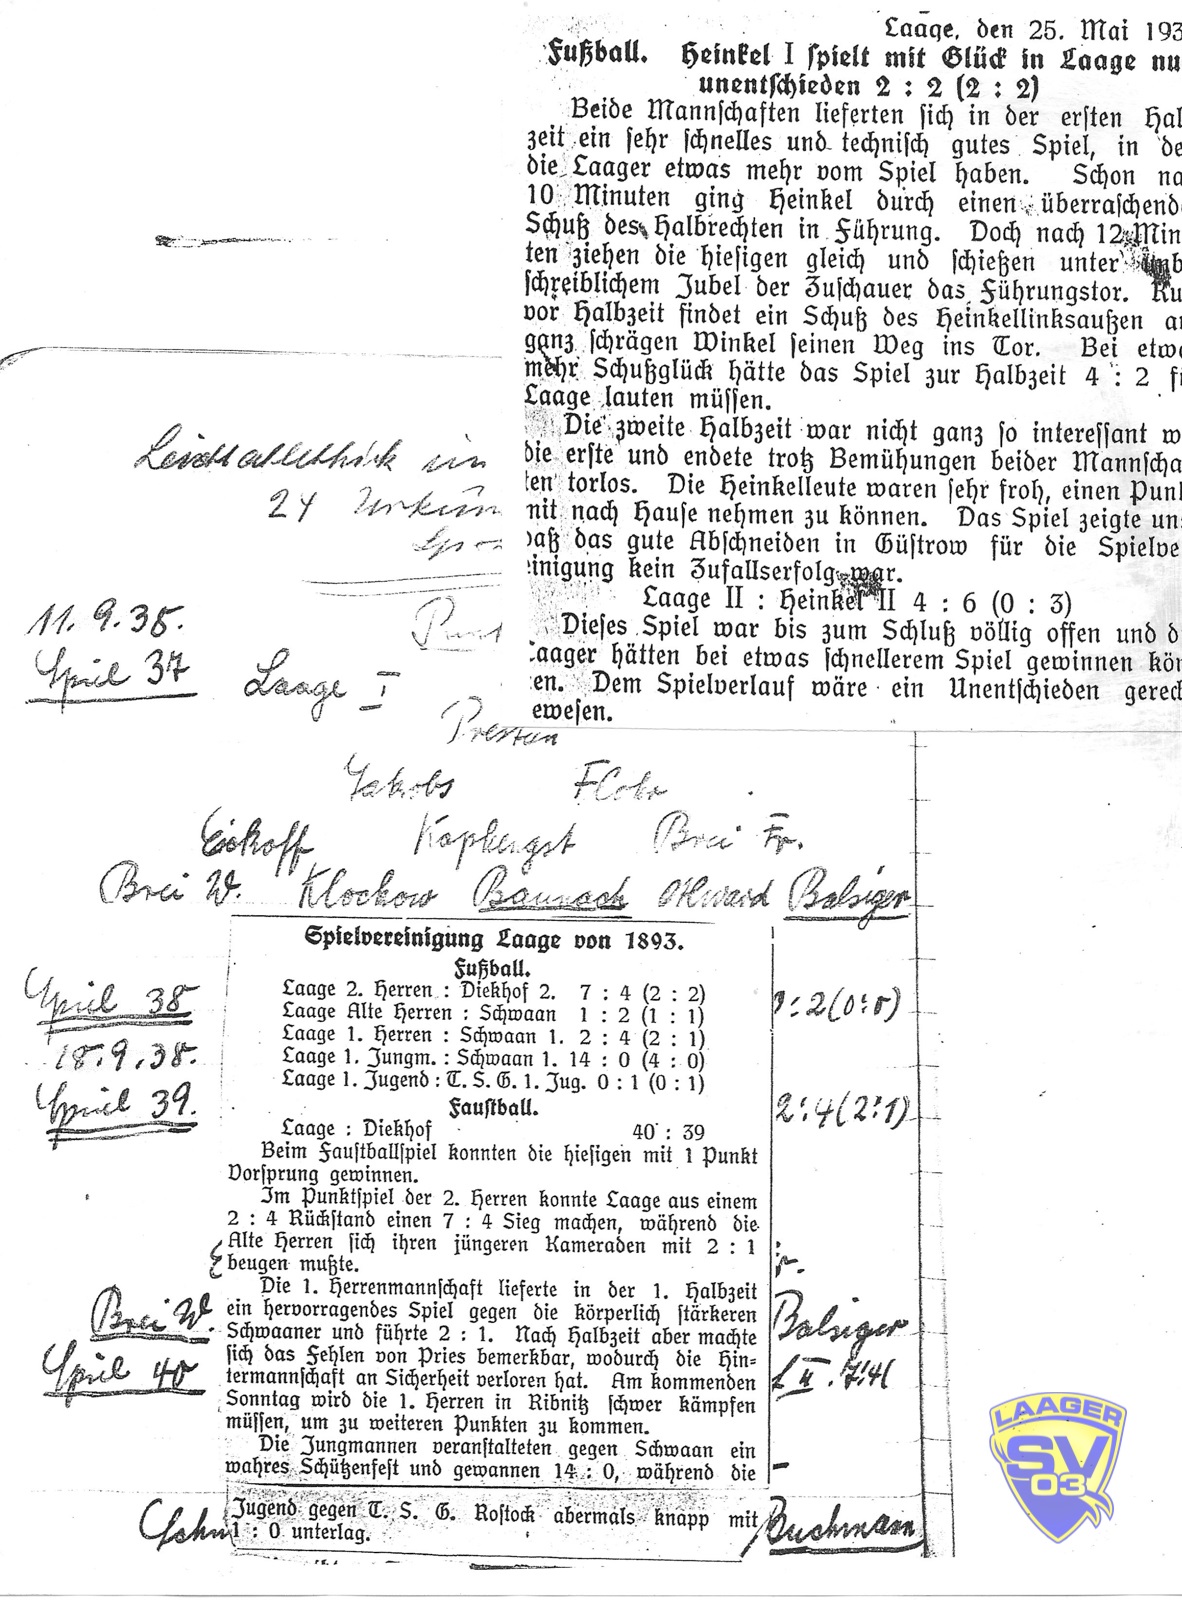 Laage, den 25. Mai 193
Fußball. Heinkel I spielt mit Glück in Laage nu
unentschieden 2 : 2 (2 : 2)
Beide Mannschaften lieferten sich in der ersten Hal
zeit ein sehr schnelles und technisch gutes Spiel, in de
die Laager etwas mehr vom Spiel haben. Schon na
10 Minuten ging Heinkel durch einen überraschend
Schuß des Halbrechten in Führung. Doch nach 12 Min
ten ziehen die hiesigen gleich und schießen unter unb
schreiblichem Jubel der Zuschauer das Führungstor. Ku
vor Halbzeit findet ein Schuß des Heinkellinksaußen a
ganz schrägen Winkel seinen Weg ins Tor. Bei etwa
mehr Schußglück hätte das Spiel zur Halbzeit 4 : 2 f
Laage lauten müssen.
Die zweite Halbzeit war nicht ganz so interessant w
die erste und endete trotz Bemühungen beider Mannscha
ten torlos. Die Heinkelleute waren sehr froh, einen Punk
mit nach Hause nehmen zu können. Das Spiel zeigte un
daß das gute Abschneiden in Güstrow für die Spielve
inigung kein Zufallserfolg war.
Laage II : Heinkel II 4 : 6 (0 : 3)
Dieses Spiel war bis zum Schluß völlig offen und d
aager hätten bei etwas schnellerem Spiel gewinnen kön
en. Dem Spielverlauf wäre ein Unentschieden gerech
ewesen.
24
11.9.38.
Spiel 37 Laage I
Jakobs Flohr
Eickoff Kaphengst Brei Fr.
Brei W. Klockow Baunach Balsiger
Spielvereinigung Laage von 1893.
Fußball.
Laage 2. Herren : Diekhof 2. 7 : 4 (2 : 2)
Laage Alte Herren : Schwaan 1 : 2 (1 : 1)
Laage 1. Herren : Schwaan 1. 2 : 4 (2 : 1)
Laage 1. Jungm. : Schwaan 1. 14 : 0 (4 : 0)
Laage 1. Jugend : T. S. G. 1. Jug. 0 : 1 (0 : 1)
Faustball.
Laage : Diekhof 40 : 39
Beim Faustballspiel konnten die hiesigen mit 1 Punkt
Vorsprung gewinnen.
Im Punktspiel der 2. Herren konnte Laage aus einem
2 : 4 Rückstand einen 7 : 4 Sieg machen, während die
Alte Herren sich ihren jüngeren Kameraden mit 2 : 1
beugen mußte.
Die 1. Herrenmannschaft lieferte in der 1. Halbzeit
ein hervorragendes Spiel gegen die körperlich stärkeren
Schwaaner und führte 2 : 1. Nach Halbzeit aber machte
sich das Fehlen von Pries bemerkbar, wodurch die Hin-
termannschaft an Sicherheit verloren hat. Am kommenden
Sonntag wird die 1. Herren in Ribnitz schwer kämpfen
müssen, um zu weiteren Punkten zu kommen.
Die Jungmannen veranstalteten gegen Schwaan ein
wahres Schützenfest und gewannen 14 : 0, während die
Jugend gegen T. S. G. Rostock abermals knapp mit
1 : 0 unterlag.
Spiel 38
18.9.38.
Spiel 39.
2:4(2:1)
Brei W. Balsiger
Spiel 40
Buchmann
LAAGER
SV
03